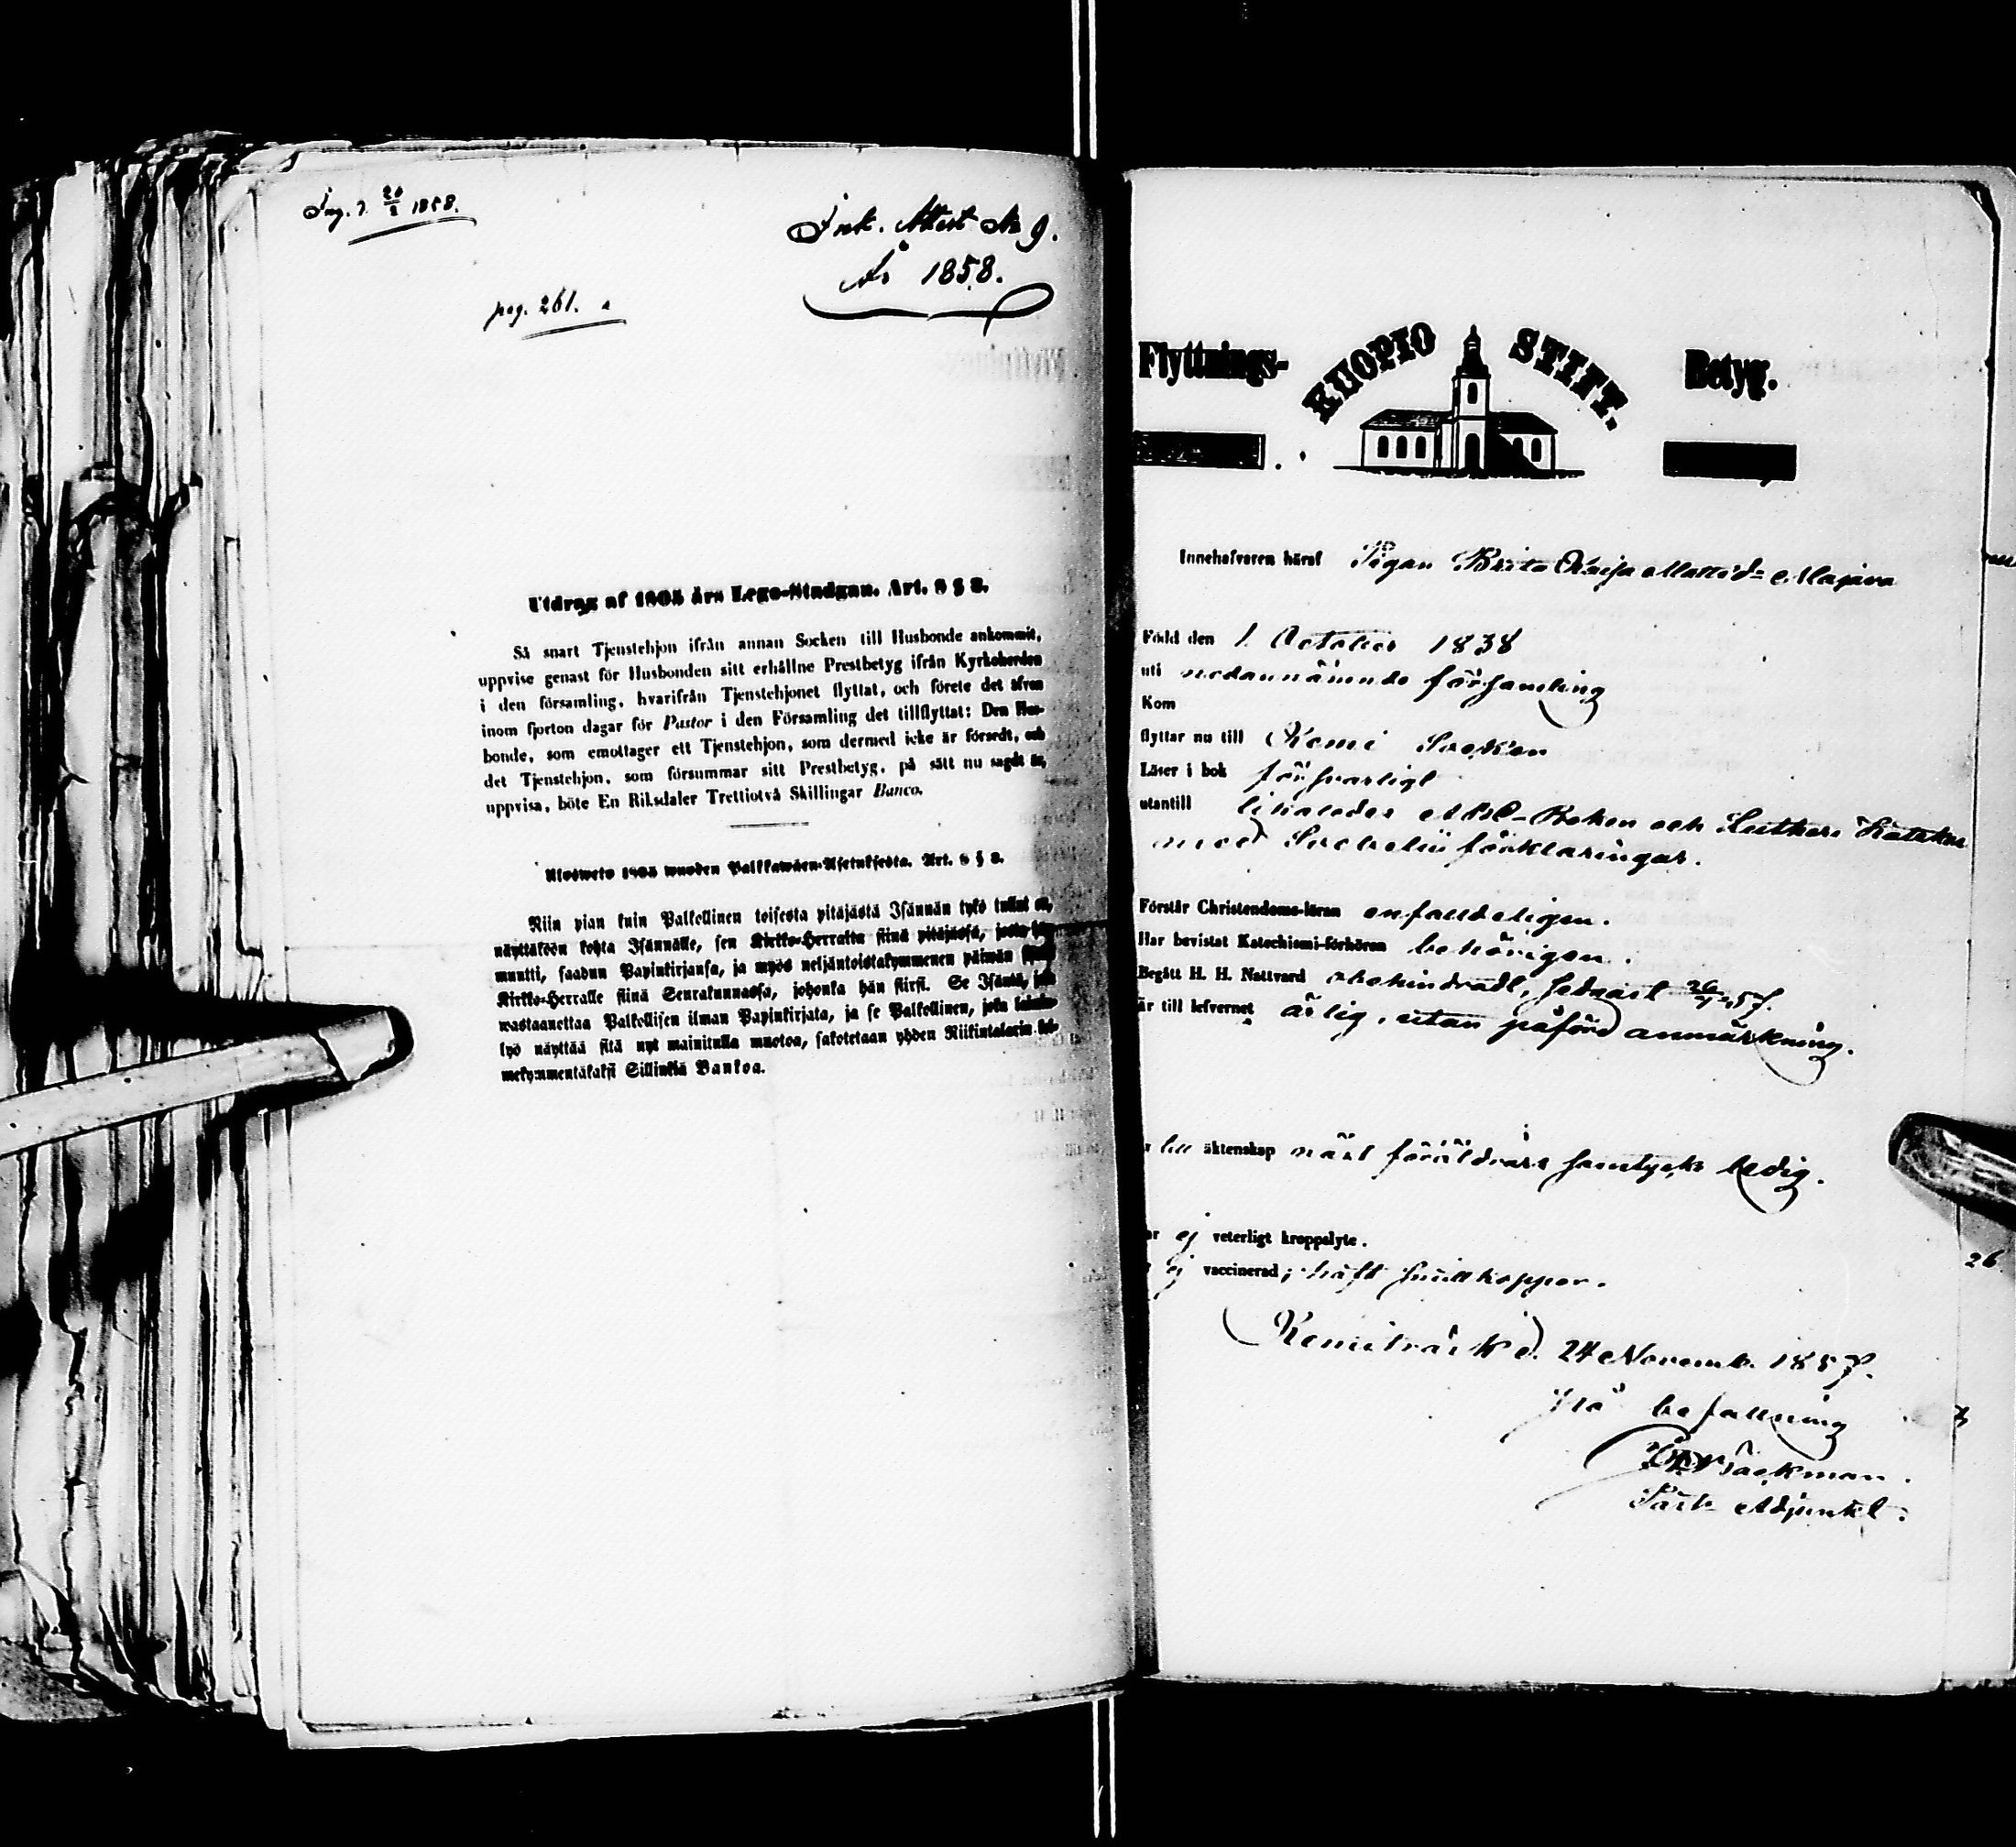 Ing. d. 20/2 1858.
Ink. Attest No 9.
År 1858.
pag. 261.
Utdrag af 1805 års Lego-Stadgan. Art. 8 § 2.
Så snart Tjenstehjon ifrån annan Socken till Husbonde ankommit,
uppvise genast för Husbonden sitt erhållne Prestbetyg ifrån Kyrkoherden
i den församling, hvarifrån Tjenstehjonet flyttat, och förete det äfven
inom fjorton dagar för Pastor i den Församling det tillflyttat: Den Hus-
bonde, som emottager ett Tjenstehjon, som dermed icke är försedt, och
det Tjenstehjon, som försummar sitt Prestbetyg, på sätt nu sagdt är,
uppvisa, böte En Riksdaler Trettiotvå Skillingar Banco.
Ulosweto 1805 wuoden Palkkawäen-Asetuksesta. Art. 8 § 2.
Niin pian kuin Palkollinen toisesta pitäjästä Isännän tykö tullut on,
näyttäköön kohta Isännälle, sen Kirkko-Herralta siinä pitäjässä, josta
muutti, saadun Papinkirjansa, ja myös neljäntoistakymmenen päiwän
Kirkko-Herralle siinä Seurakunnassa, johonka hän siirsi. Se Isäntä, joka
wastaanottaa Palkollisen ilman Papinkirjata, ja se Palkollinen, joka laimin-
lyö näyttää sitä nyt mainitulla muotoa, sakotetaan yhden Riikintalarin kol-
mekymmentäkaksi Sillinkiä Bankoa.
Flyttnings- KUOPIO STIFT. Betyg.
Innehafvaren häraf Pigan Brita Kaisa Mattsd: Majava
Född den 1 October 1838
uti nedannämnde församling
Kom
flyttar nu till Kemi Socken
Läser i bok försvarligt
utantill likaledes ABC-Boken och Luthers Kateches
med Svebelii förklaringar.
Förstår Christendoms-läran enfaldeligen.
Har bevistat Katechismi-förhören behörigen.
Begått H. H. Nattvard obehindradt, sednast 57.
är till lefvernet ärlig, utan påförd anmärkning.
till äktenskap näst föräldrars samtycke ledig.
ej veterligt kroppslyte.
ej vaccinerad; haft smittkoppor.
Kemiträsk d. 24 Novemb. 1857.
På befallning
Backman.
Past. Adjunkt.
26